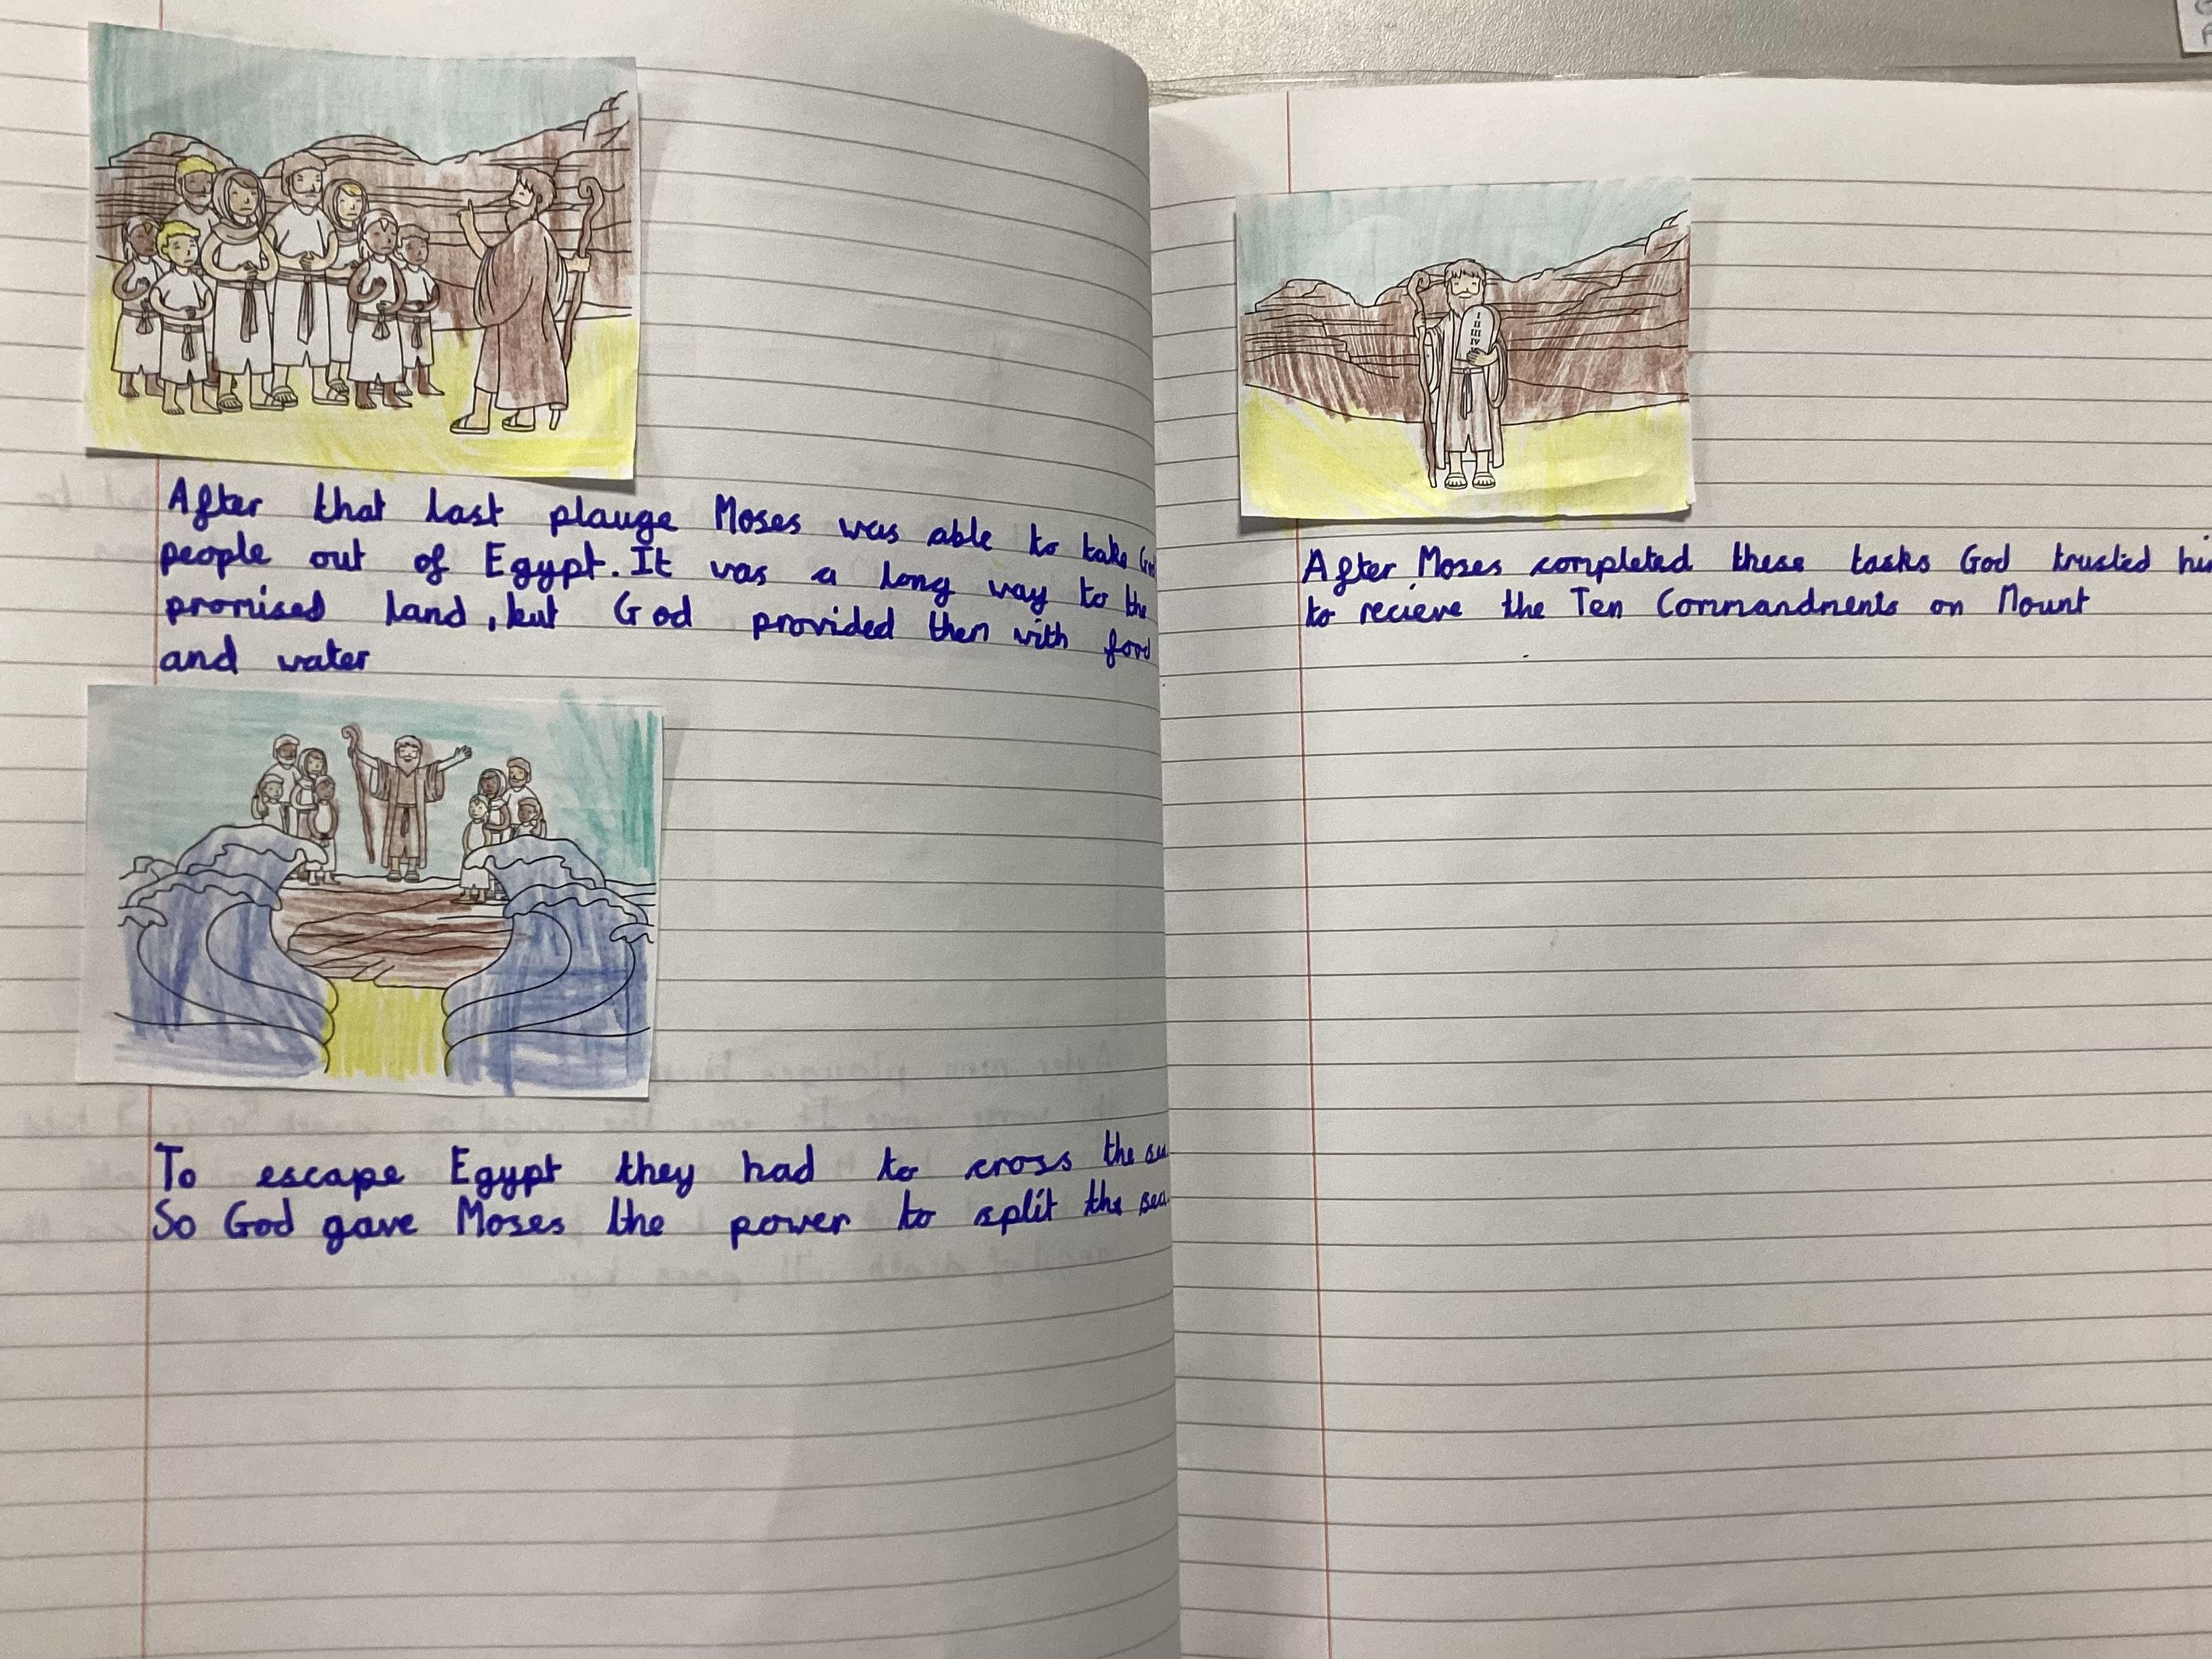 After that last plauge Moses was able to take
people out of Egypt. It was a long way to the
promised land, but God provided them with food
and water
To escape Egypt they had to cross the
So God gave Moses the power to split the sea.
I
II
III
IV
After Moses completed these tasks God trusted
to recieve the Ten Commandments on Mount